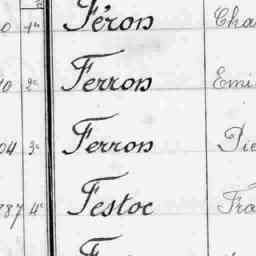 0 1º Féron Cha
10 2º Ferron Emi
04 3º Ferron Pie
787 4º Festoc Fra